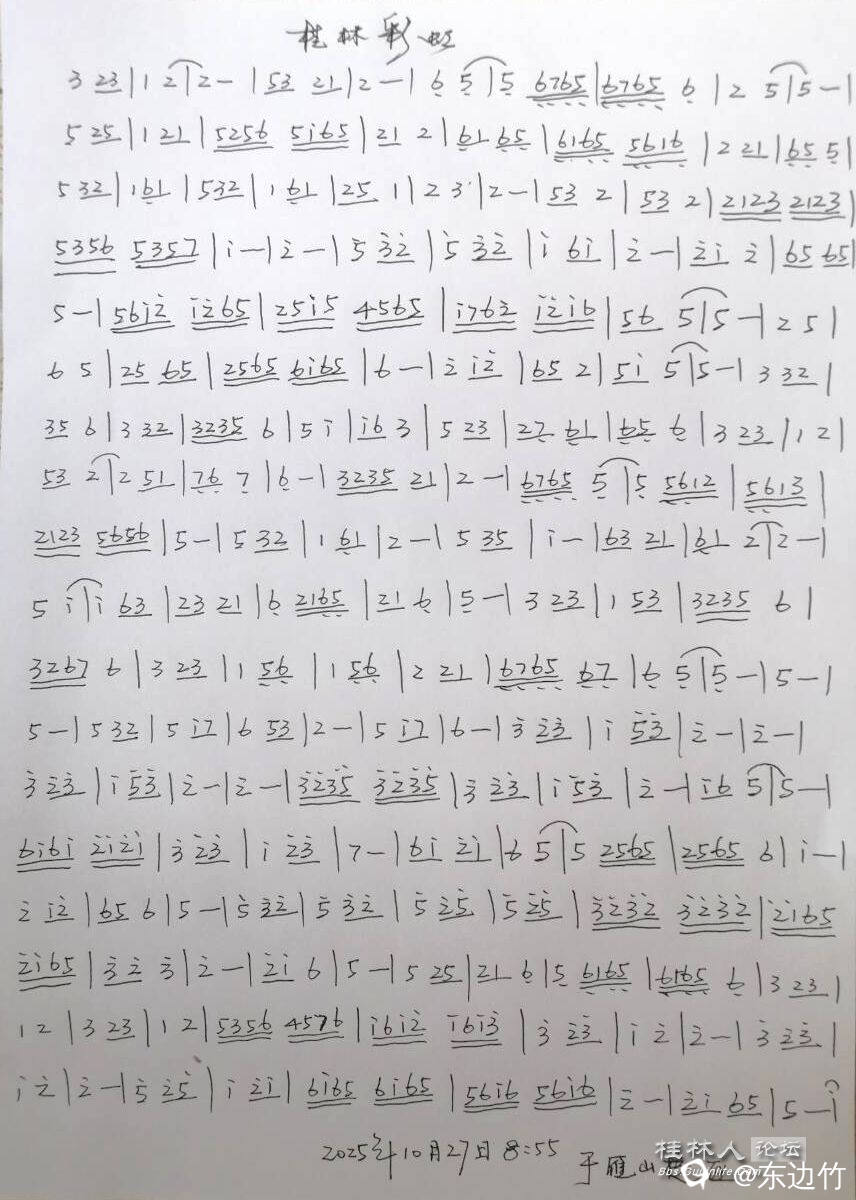 桂林彩虹
3 23|1 2|2-|53 21|2-|6 5|5 6765|6765 6|2 5|5-|
5 25|1 21|5256 5i65|21 2|61 65|6165 5616|2 21|65 5|
5 32|1 61|5 32|1 61|25 1|2 3|2-|53 2|53 2|2123 2123|
5356 5357|i-|2-|5 32|5 32|i 6i|2-|2i 2|65 65|
5-|56i2 i265|25i5 4565|i762 i2i6|56 5|5-|2 5|
6 5|25 65|2565 6i65|6-|2 i2|65 2|5i 5|5-|3 32|
35 6|3 32|3235 6|5 i|i6 3|5 23|27 61|65 6|3 23|1 2|
53 2|2 51|76 7|6-|3235 21|2-|6765 5|5 5612|5613|
2123 5656|5-|5 32|1 61|2-|5 35|i-|63 21|61 2|2-|
5 i|i 63|23 21|6 2165|21 6|5-|3 23|1 53|3235 6|
3267 6|3 23|1 56|1 56|2 21|6765 67|6 5|5-|5-|
5-|5 32|5 i7|6 53|2-|5 i7|6-|3 23|i 53|2-|2-|
3 23|i 53|2-|2-|3235 3235|3 23|i 53|2-|i6 5|5-|
6i6i 2i2i|3 23|i 23|7-|6i 2i|6 5|5 2565|2565 6|i-|
2 i2|65 6|5-|5 32|5 32|5 25|5 25|3232 3232|2i65
2i65|32 3|2-|2i 6|5-|5 25|21 6|5 6165|6165 6|3 23|
1 2|3 23|1 2|5356 4576|i6i2 i6i3|3 23|i 2|2-|3 23|
i 2|2-|5 25|i 2i|6i65 6i65|56i6 56i6|2-|2i 65|5-i
2025年10月27日8:55 于雁山
桂林人论坛
Bbs.Guilinlife.com
@东边竹